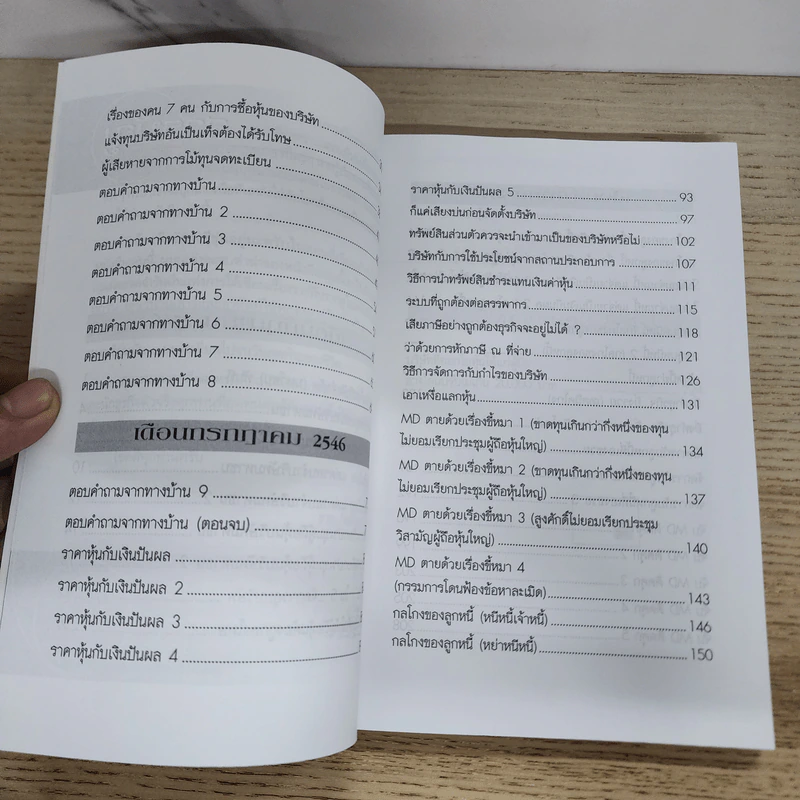 เรื่องของคน 7 คน กับการซื้อหุ้นของบริษัท
แจ้งทุนบริษัทอันเป็นเท็จต้องได้รับโทษ
ผู้เสียหายจากการโม้ทุนจดทะเบียน
ตอบคำถามจากทางบ้าน
ตอบคำถามจากทางบ้าน 2
ตอบคำถามจากทางบ้าน 3
ตอบคำถามจากทางบ้าน 4
ตอบคำถามจากทางบ้าน 5
ตอบคำถามจากทางบ้าน 6
ตอบคำถามจากทางบ้าน 7
ตอบคำถามจากทางบ้าน 8
เดือนกรกฎาคม 2546
ตอบคำถามจากทางบ้าน 9
ตอบคำถามจากทางบ้าน (ตอนจบ)
ราคาหุ้นกับเงินปันผล
ราคาหุ้นกับเงินปันผล 2
ราคาหุ้นกับเงินปันผล 3
ราคาหุ้นกับเงินปันผล 4
ราคาหุ้นกับเงินปันผล 5 93
ก็แค่เสียงบ่นก่อนจัดตั้งบริษัท 97
ทรัพย์สินส่วนตัวควรจะนำเข้ามาเป็นของบริษัทหรือไม่ 102
บริษัทกับการใช้ประโยชน์จากสถานประกอบการ 107
วิธีการนำทรัพย์สินชำระแทนเงินค่าหุ้น 111
ระบบที่ถูกต้องต่อสรรพากร 115
เสียภาษีอย่างถูกต้องธุรกิจจะอยู่ไม่ได้ ? 118
ว่าด้วยการหักภาษี ณ ที่จ่าย 121
วิธีการจัดการกับกำไรของบริษัท 126
เอาเหงื่อแลกหุ้น 131
MD ตายด้วยเรื่องขี้หมา 1 (ขาดทุนเกินกว่ากึ่งหนึ่งของทุน
ไม่ยอมเรียกประชุมผู้ถือหุ้นใหญ่) 134
MD ตายด้วยเรื่องขี้หมา 2 (ขาดทุนเกินกว่ากึ่งหนึ่งของทุน
ไม่ยอมเรียกประชุมผู้ถือหุ้นใหญ่) 137
MD ตายด้วยเรื่องขี้หมา 3 (สูงศักดิ์ไม่ยอมเรียกประชุม
วิสามัญผู้ถือหุ้นใหญ่) 140
MD ตายด้วยเรื่องขี้หมา 4
(กรรมการโดนฟ้องข้อหาละเมิด) 143
กลโกงของลูกหนี้ (หนีหนี้เจ้าหนี้) 146
กลโกงของลูกหนี้ (หย่าหนีหนี้) 150